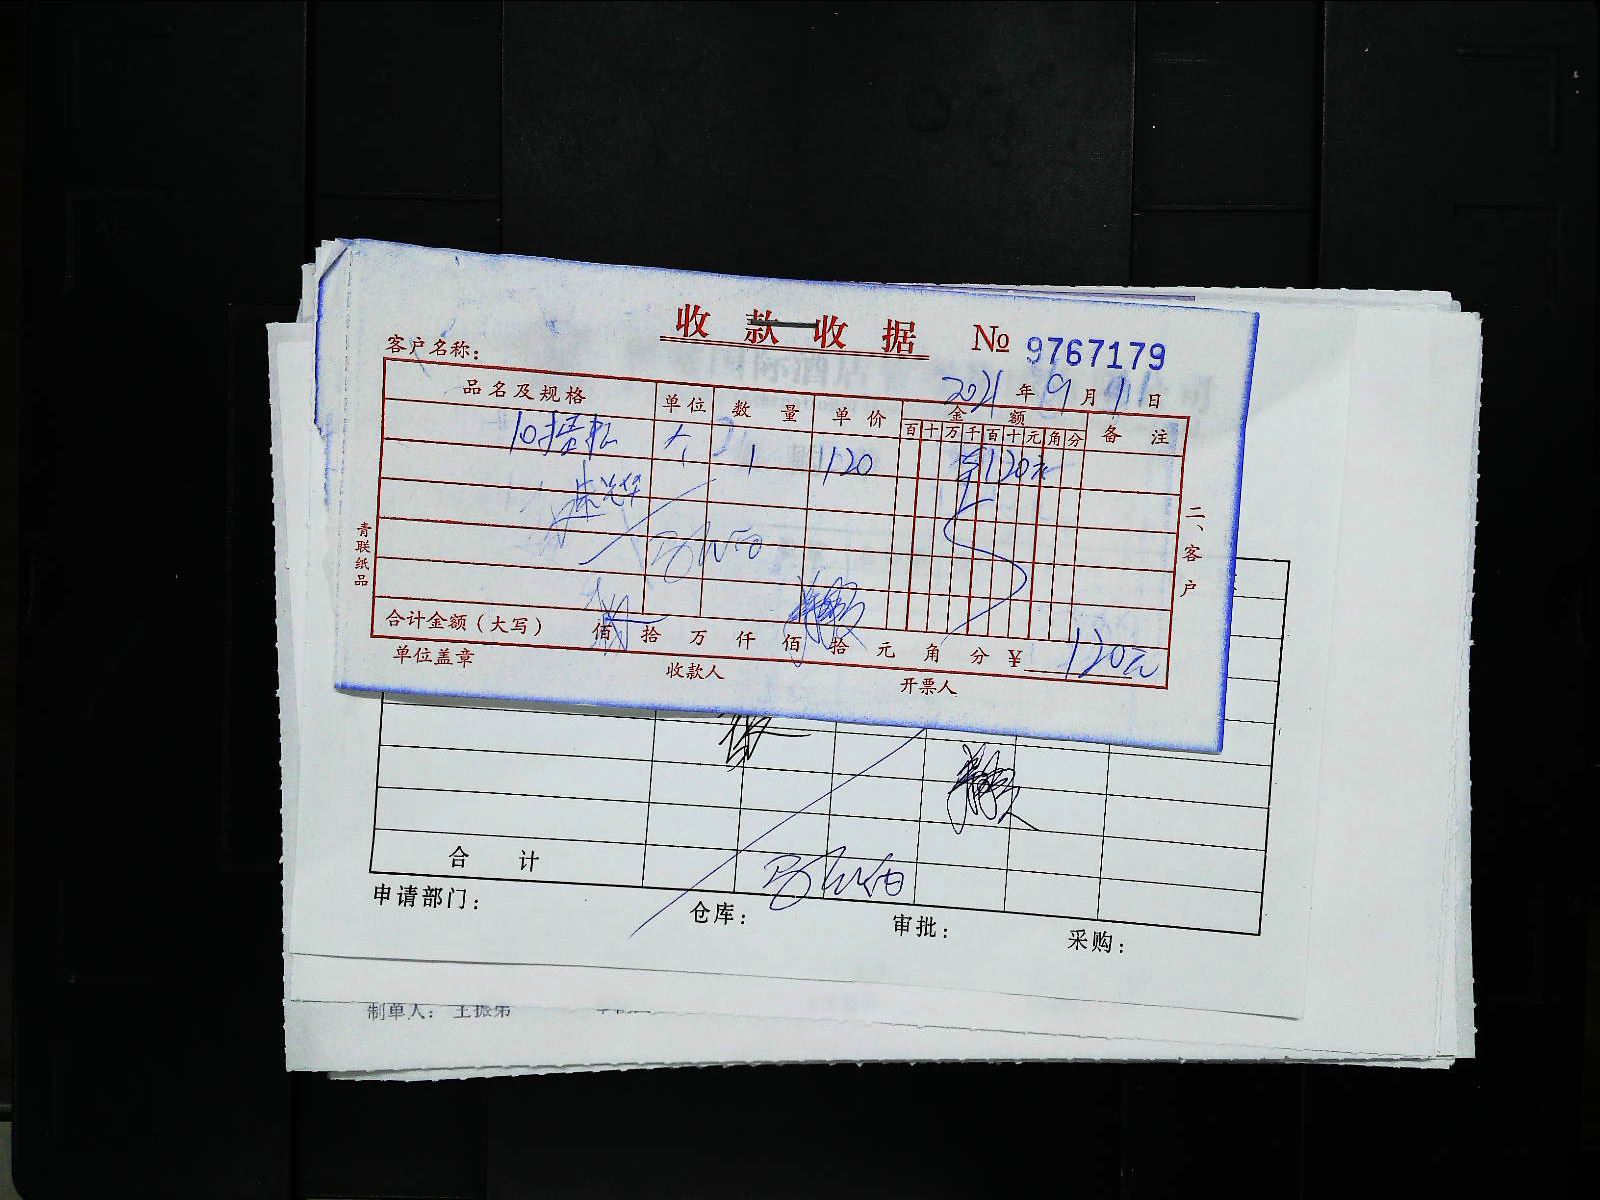 收款收据 № 9767179
客户名称: 2021 年 9 月 11 日
品名及规格 单位 数量 单价 金额 备注
百 十 万 千 百 十 元 角 分
个 1 120 120元
青联纸品
二、客户
合计金额(大写) 佰 拾 万 仟 佰 拾 元 角 分 ¥ 120元
单位盖章 收款人 开票人
合计
申请部门: 仓库: 审批: 采购:
制单人: 王振弟